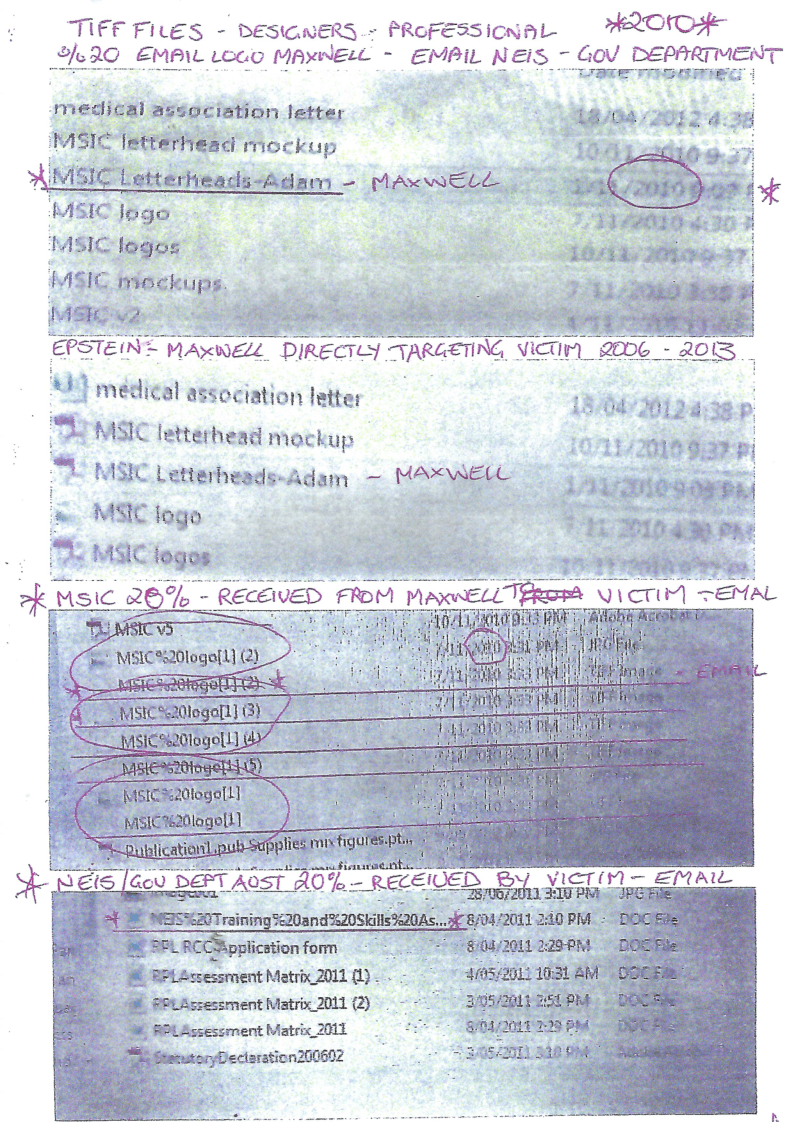 TIFF FILES - DESIGNERS - PROFESSIONAL *2010*
%20 EMAIL LOGO MAXWELL - EMAIL NEIS - GOV DEPARTMENT
Date modified
medical association letter 18/04/2012 4:38
MSIC letterhead mockup 10/11/2010 9:37
* MSIC Letterheads-Adam - MAXWELL 1/11/2010 9:03 *
MSIC logo 7/11/2010 4:30 P
MSIC logos 10/11/2010 9:37
MSIC mockups 7/11/2010 3:35 P
MSIC v2
EPSTEIN - MAXWELL DIRECTLY TARGETING VICTIM 2006 - 2013
medical association letter 18/04/2012 4:38 P
MSIC letterhead mockup 10/11/2010 9:37 PM
MSIC Letterheads-Adam - MAXWELL 1/11/2010 9:03 PM
MSIC logo 7/11/2010 4:30 PM
MSIC logos 10/11/2010 9:37 PM
* MSIC 20% - RECEIVED FROM MAXWELL TO VICTIM - EMAL
MSIC v5 10/11/2010 9:33 PM Adobe Acrobat
MSIC%20logo[1] (2) 7/11/2010 3:31 PM JPG File
* MSIC%20logo[1] (2) * 7/11/2010 3:53 PM TIFF Image - EMAIL
MSIC%20logo[1] (3) 7/11/2010 3:53 PM TIFF Image
MSIC%20logo[1] (4) 7/11/2010 PM TIFF Image
MSIC%20logo[1] (5) 7/11/2010 PM TIFF Image
MSIC%20logo[1]
MSIC%20logo[1]
Publication1.pub Supplies mix figures.pt...
mix figures.pt...
* NEIS/GOV DEPT AOST 20% - RECEIVED BY VICTIM - EMAIL
image001 28/06/2011 3:10 PM JPG File
* NEIS%20Training%20and%20Skills%20As... * 8/04/2011 2:10 PM DOC File
RPL RCC Application form 8/04/2011 2:29 PM DOC File
RPLAssessment Matrix_2011 (1) 4/05/2011 10:31 AM DOC File
RPLAssessment Matrix_2011 (2) 3/05/2011 2:51 PM DOC File
RPLAssessment Matrix_2011 8/04/2011 2:29 PM DOC File
StatutoryDeclaration200602 3/05/2011 3:10 PM Adobe